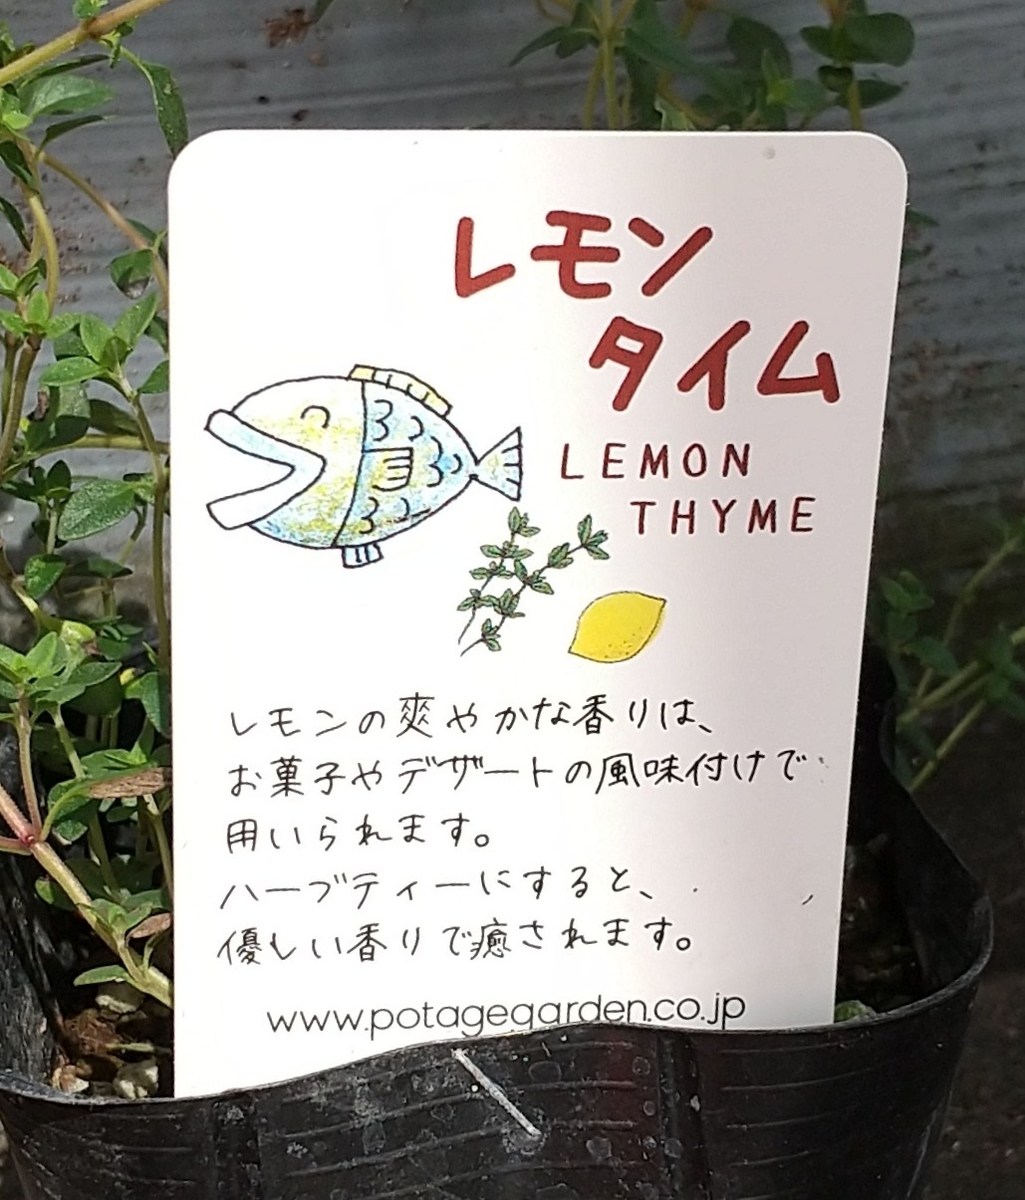 レモン
タイム
LEMON
THYME
レモンの爽やかな香りは、
お菓子やデザートの風味付けで
用いられます。
ハーブティーにすると、
優しい香りで癒されます。
www.potagegarden.co.jp